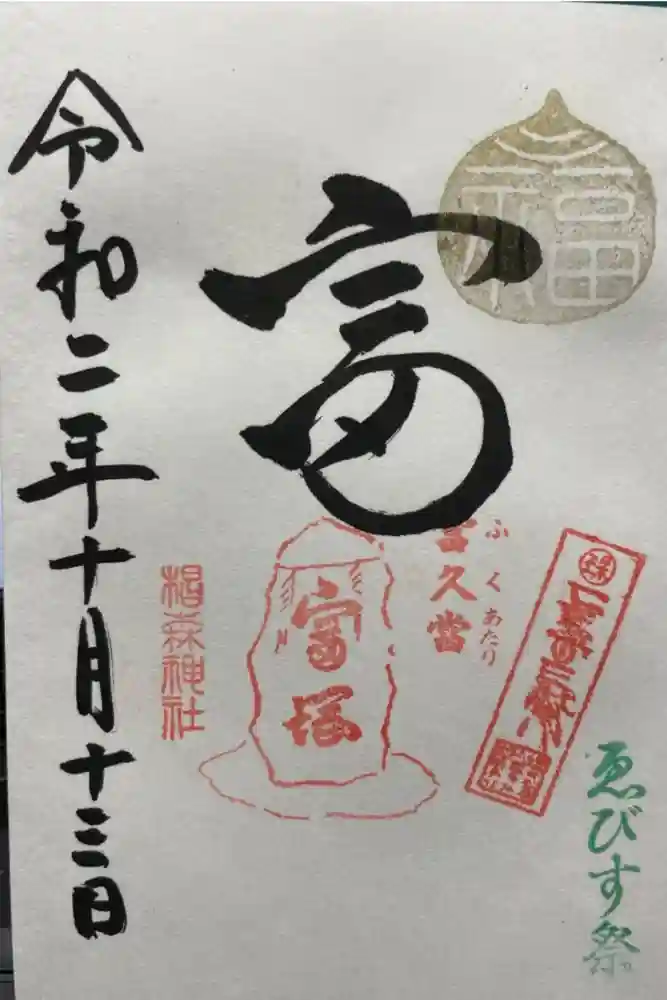 福
富
富久當
ふくあたり
富塚
ゑびす祭
椙森神社
令和二年十月十三日